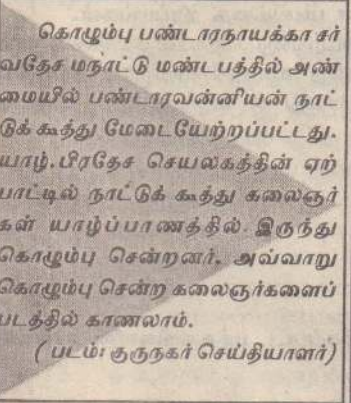 கொழும்பு பண்டாரநாயக்கா சர்
வதேச மநாட்டு மண்டபத்தில் அண்
மையில் பண்டாரவன்னியன் நாட்
டுக் கூத்து மேடையேற்றப்பட்டது.
யாழ். பிரதேச செயலகத்தின் ஏற்
பாட்டில் நாட்டுக் கூத்து கலைஞர்
கள் யாழ்ப்பாணத்தில் இருந்து
கொழும்பு சென்றனர். அவ்வாறு
கொழும்பு சென்ற கலைஞர்களைப்
படத்தில் காணலாம்.
( படம்: குருநகர் செய்தியாளர்)